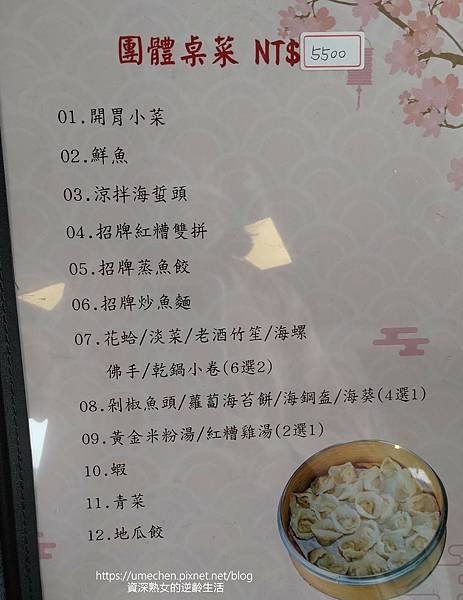 團體桌菜 NT$ 5500
01.開胃小菜
02.鮮魚
03.涼拌海蜇頭
04.招牌紅糟雙拼
05.招牌蒸魚餃
06.招牌炒魚麵
07.花蛤/淡菜/老酒竹笙/海螺
佛手/乾鍋小卷(6選2)
08.剁椒魚頭/蘿蔔海苔餅/海鋼盔/海葵(4選1)
09.黃金米粉湯/紅糟雞湯(2選1)
10.蝦
11.青菜
12.地瓜餃
https://umechen.pixnet.net/blog
資深熟女的逆齡生活